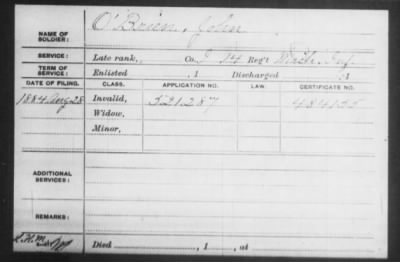 NAME OF SOLDIER: O'Brien, John
SERVICE: Late rank, Co. I 14 Reg't Inf.
TERM OF SERVICE: Enlisted , 1 Discharged , 1
DATE OF FILING. CLASS. APPLICATION NO. LAW. CERTIFICATE NO.
1884 Aug 28 Invalid, 521287 484135
Widow,
Minor,
ADDITIONAL SERVICES:
REMARKS:
Died , 1 , at